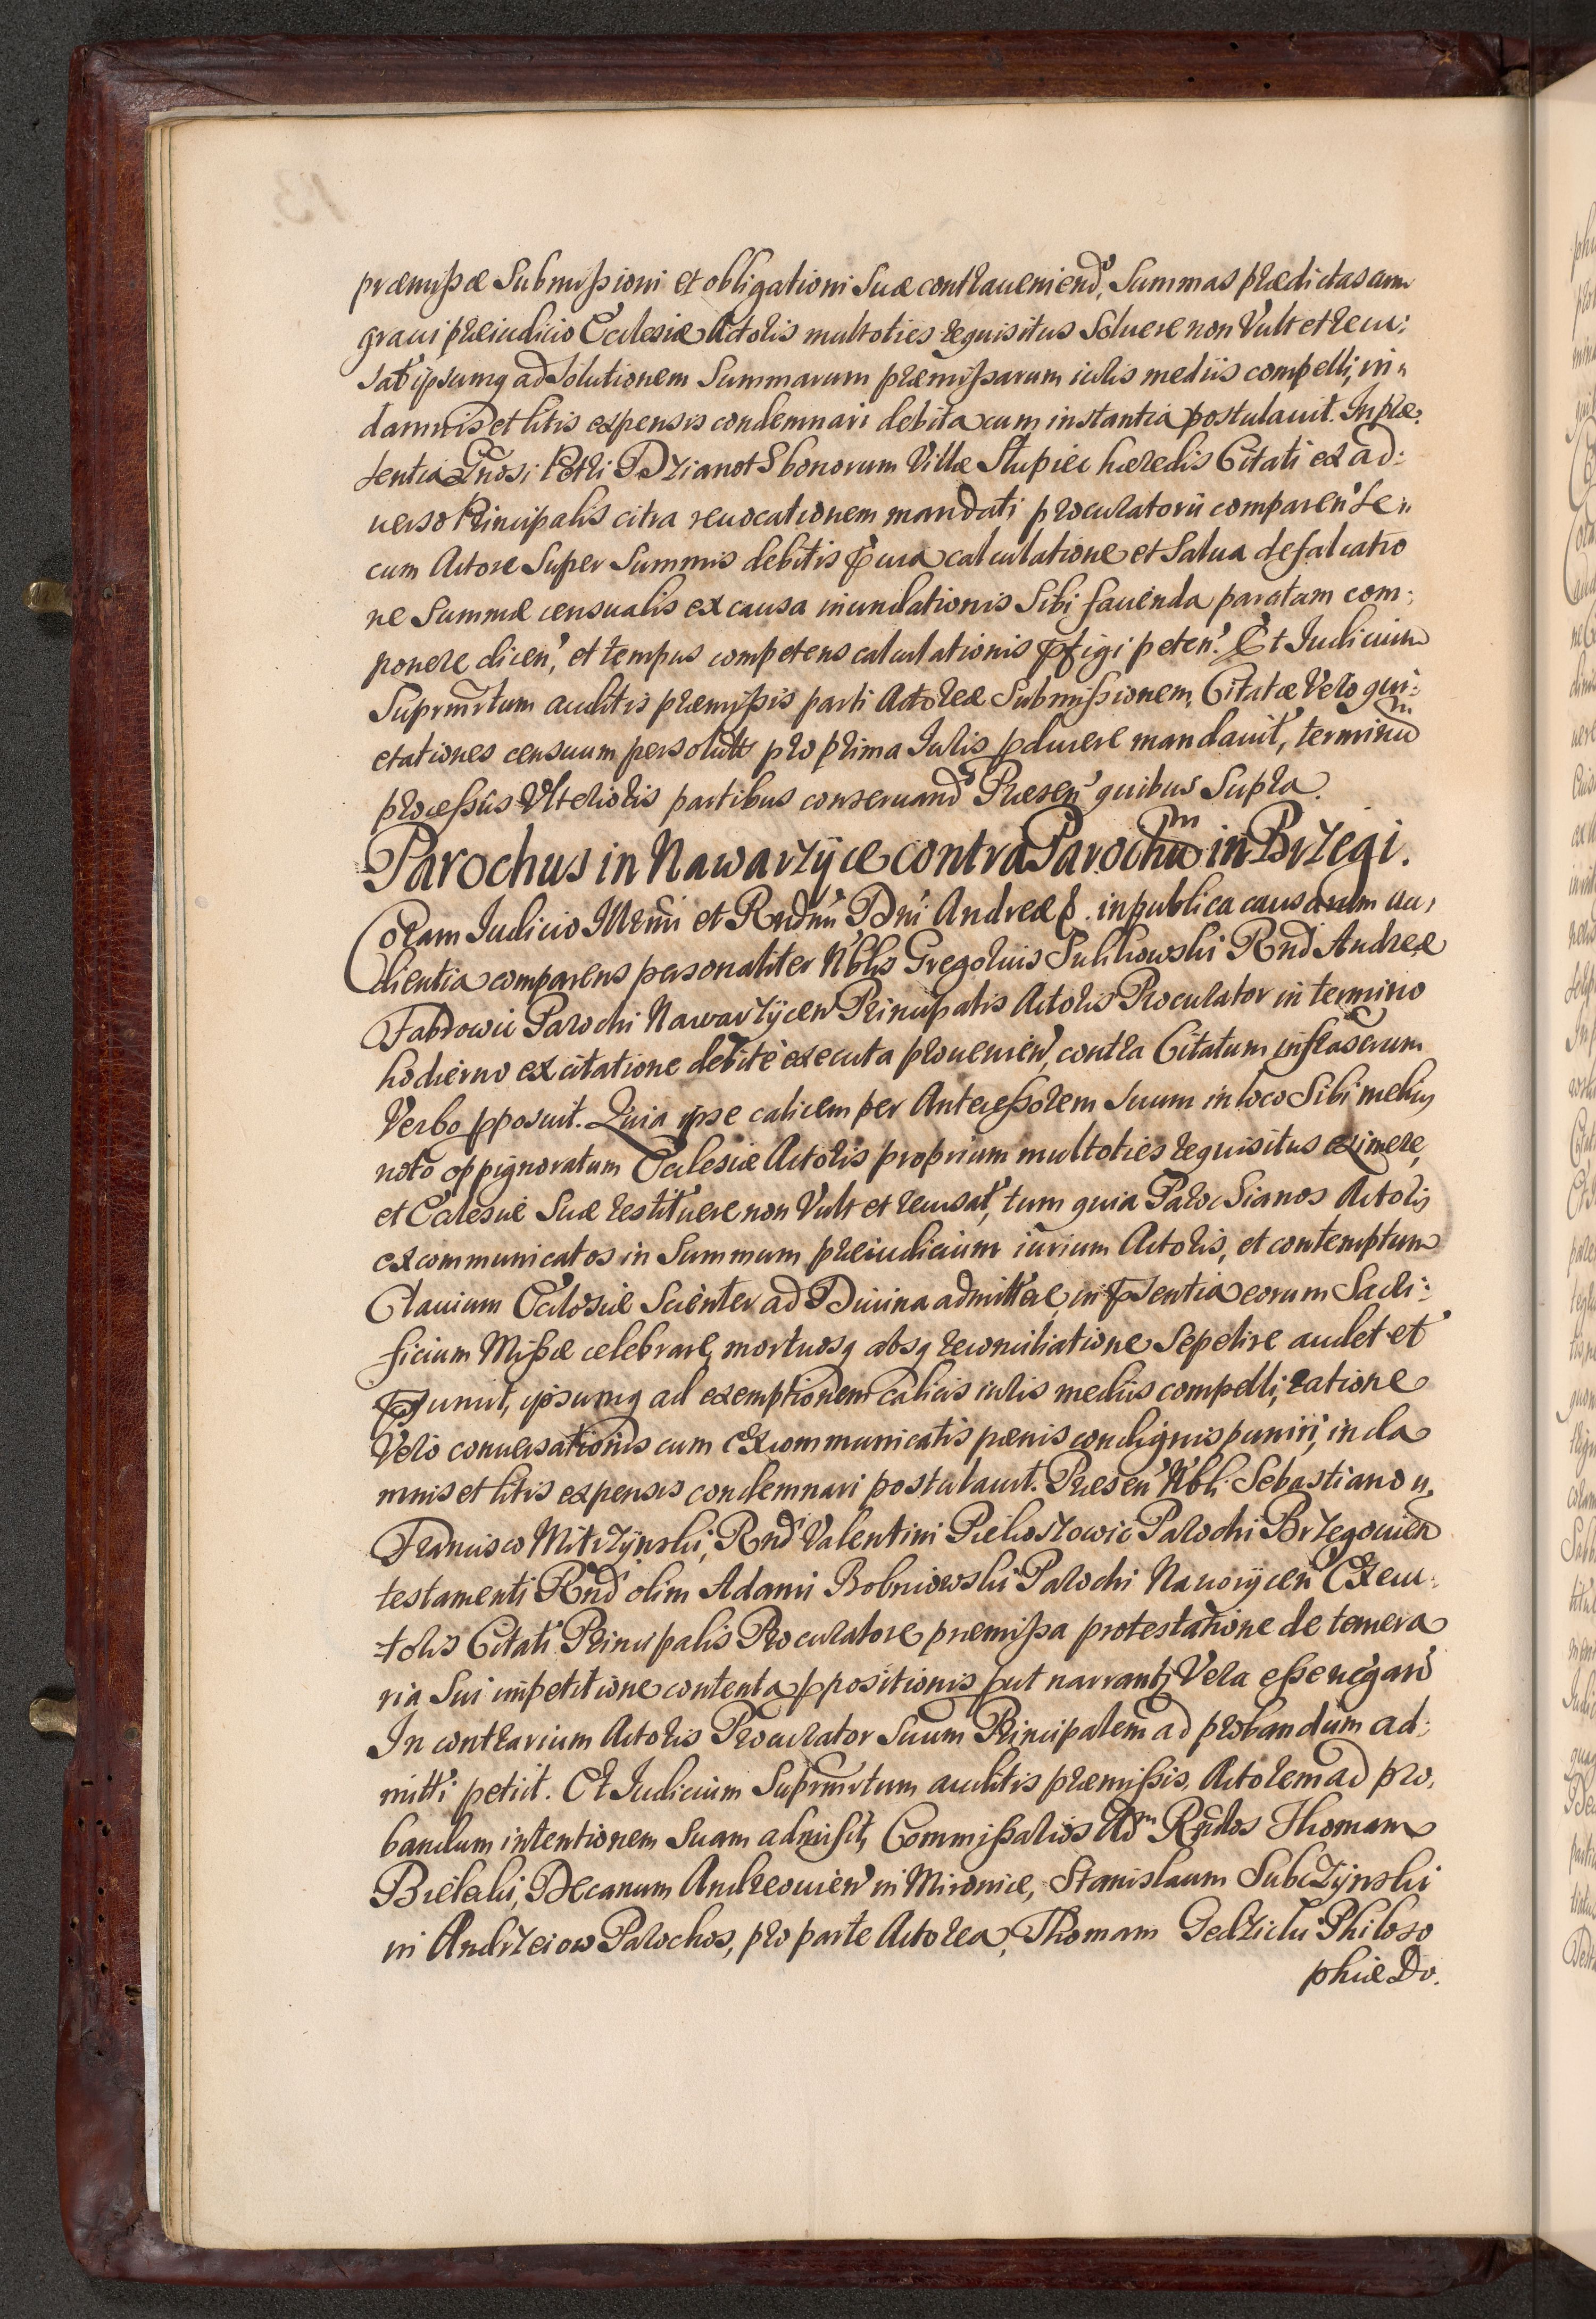 præmissæ Submissioni et obligationi Suæ contraueniend', Summas prædictas cum
graui præiudicio Ecclesiæ Actoris multoties requisitus Soluere non Vult et recu:
sat ipsumq ad Solutionem Summarum præmissarum iuris mediis compelli, in
damnis et litis expensis condemnari debita cum instantia postulauit. In præ:
sentia Gnosi Petri Dzianot S bonorum Villæ Słupiec hæredis Citati ex ad:
uerso Principalis citra reuocationem mandati procuratorii comparen' se
cum Actore Super Summis debitis pura calculatione et Salua defalcatio
ne Summæ censualis ex causa inundationis Sibi fauenda paratam com:
ponere dicen', et tempus competens calculationis pfigi peten'. Et Iudicium
Suprmrtum auditis præmissis parti Actoreæ Submissionem, Citatæ Vero qui:
etationes censuum persolutt pro prima Iuris pducere mandauit, terminum
processus Vlterioris partibus conseruand' Presen' quibus Supra.
Parochus in Nawarzyce contra Parochum in Brzegi.
Coram Iudicio Illrmi et Rndmi Dni Andreæ p. in publica causarum au,
dientia comparens personaliter Nblis Gregorius Sulikowski Rnd Andreæ
Fabrowic Parochi Nawarzycen' Principalis Actoris Procurator in termino
hodierno ex citatione debite executa prouenien', contra Citatum infrascrum
Verbo pposuit. Quia ipse calicem per Antecessorem Suum in loco Sibi melius
noto oppignoratum Ecclesiæ Actoris proprium multoties requisitus eximere,
et Ecclesiæ Suæ restituere non Vult et recusat, tum quia Parocsianos Actoris
excommunicatos in Summum præiudicium iurium Actoris, et contemptum
Clauium Eclosiæ Scienter ad Diuina admittere, in psentia eorum Sacri:
ficium Missæ celebrare, mortuosq absq reconciliatione Sepelire audet et
psumit, ipsumq ad exemptionem calicis iuris mediis compelli, ratione
Vero conuersationis cum excommunicatis pœnis condignis puniri, in da
mnis et litis expensis condemnari postulauit. Presen' Nbli Sebastiano
Francisco Mitrzynski, Rnd Valentini Piekoszowic Parochi Brzegouien
testamenti Rnd olim Adami Bobniowski Parochi Naworycen' Execu:
toris Citati Principalis Procuratore præmissa protestatione de temera
ria Sui impetitione contenta ppositionis put narrantr Vera esse negari
In contrarium Actoris Procurator Suum Principalem ad probandum ad:
mitti petiit. Et Iudicium Suprmrtum auditis præmissis, Actorem ad pro,
bandum intentionem Suam admisit, Commissarios Adm Rndos Thomam
Bielecki, Decanum Andreouien' in Mironice, Stanislaum Subczynski
in Andrzeiow Parochos, pro parte Actorea, Thomam Gedzicki Philoso
phiæ Do.